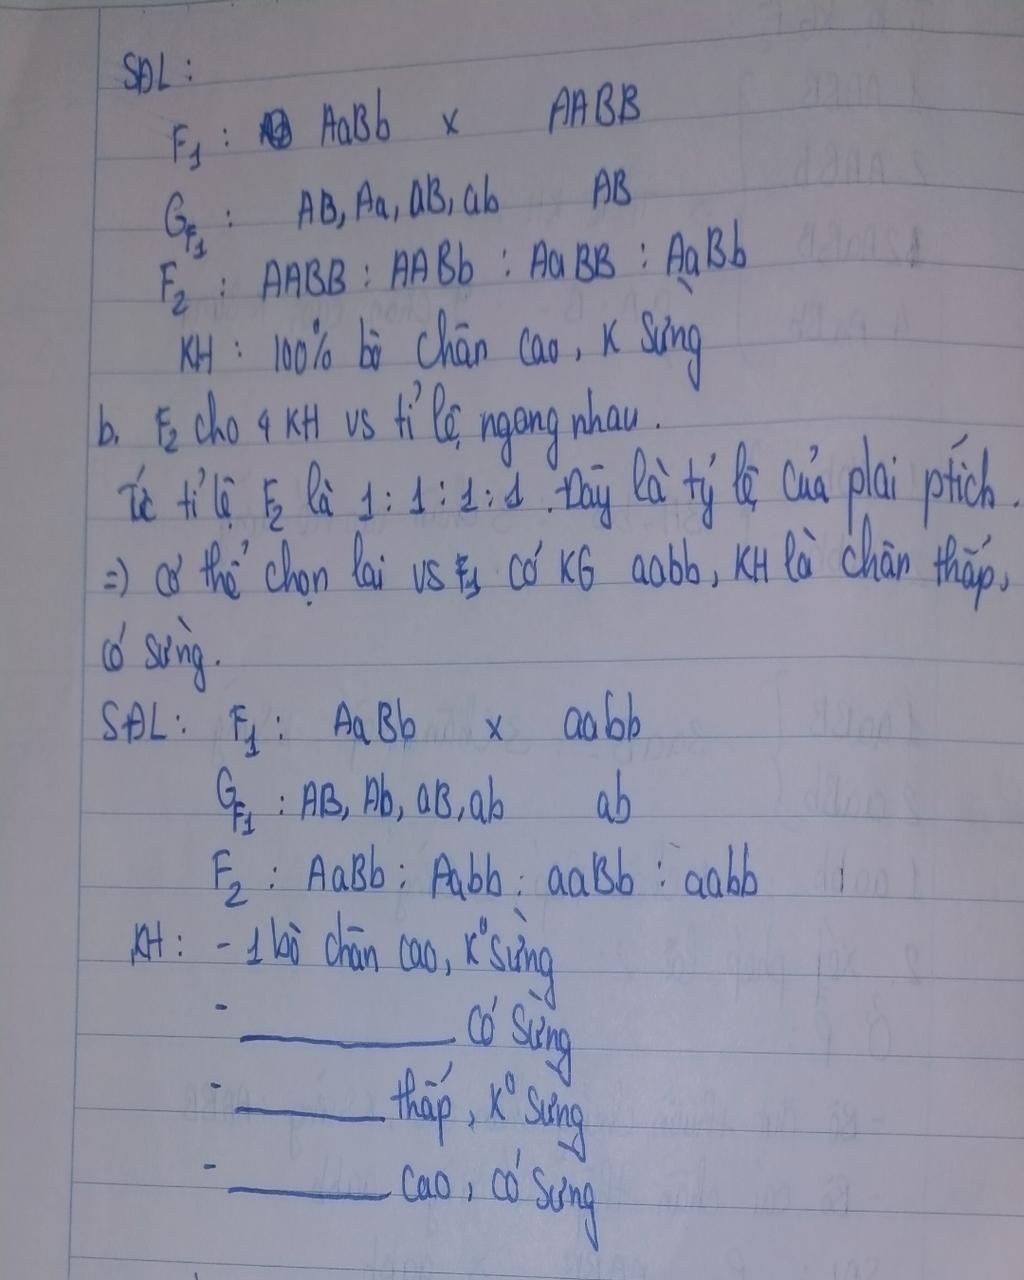 SĐL:
F1 : AaBb x AABB
GF1 : AB, Aa, aB, ab AB
F2 : AABB : AABb : AaBB : AaBb
KH : 100% bò chân cao, K sừng
b. F2 cho 4 KH vs tỉ lệ ngang nhau.
Tức tỉ lệ F2 là 1 : 1 : 1 : 1. Đây là tỷ lệ của plai ptích.
=) cơ thể chọn lai vs F1 có KG aabb, KH là chân thấp,
có sừng.
SĐL: F1 : AaBb x aabb
GF1 : AB, Ab, aB, ab ab
F2 : AaBb : Aabb : aaBb : aabb
KH : - 1 bò chân cao, K⁰ sừng
- ____ có sừng
- ____ thấp, K⁰ sừng
- ____ cao, có sừng